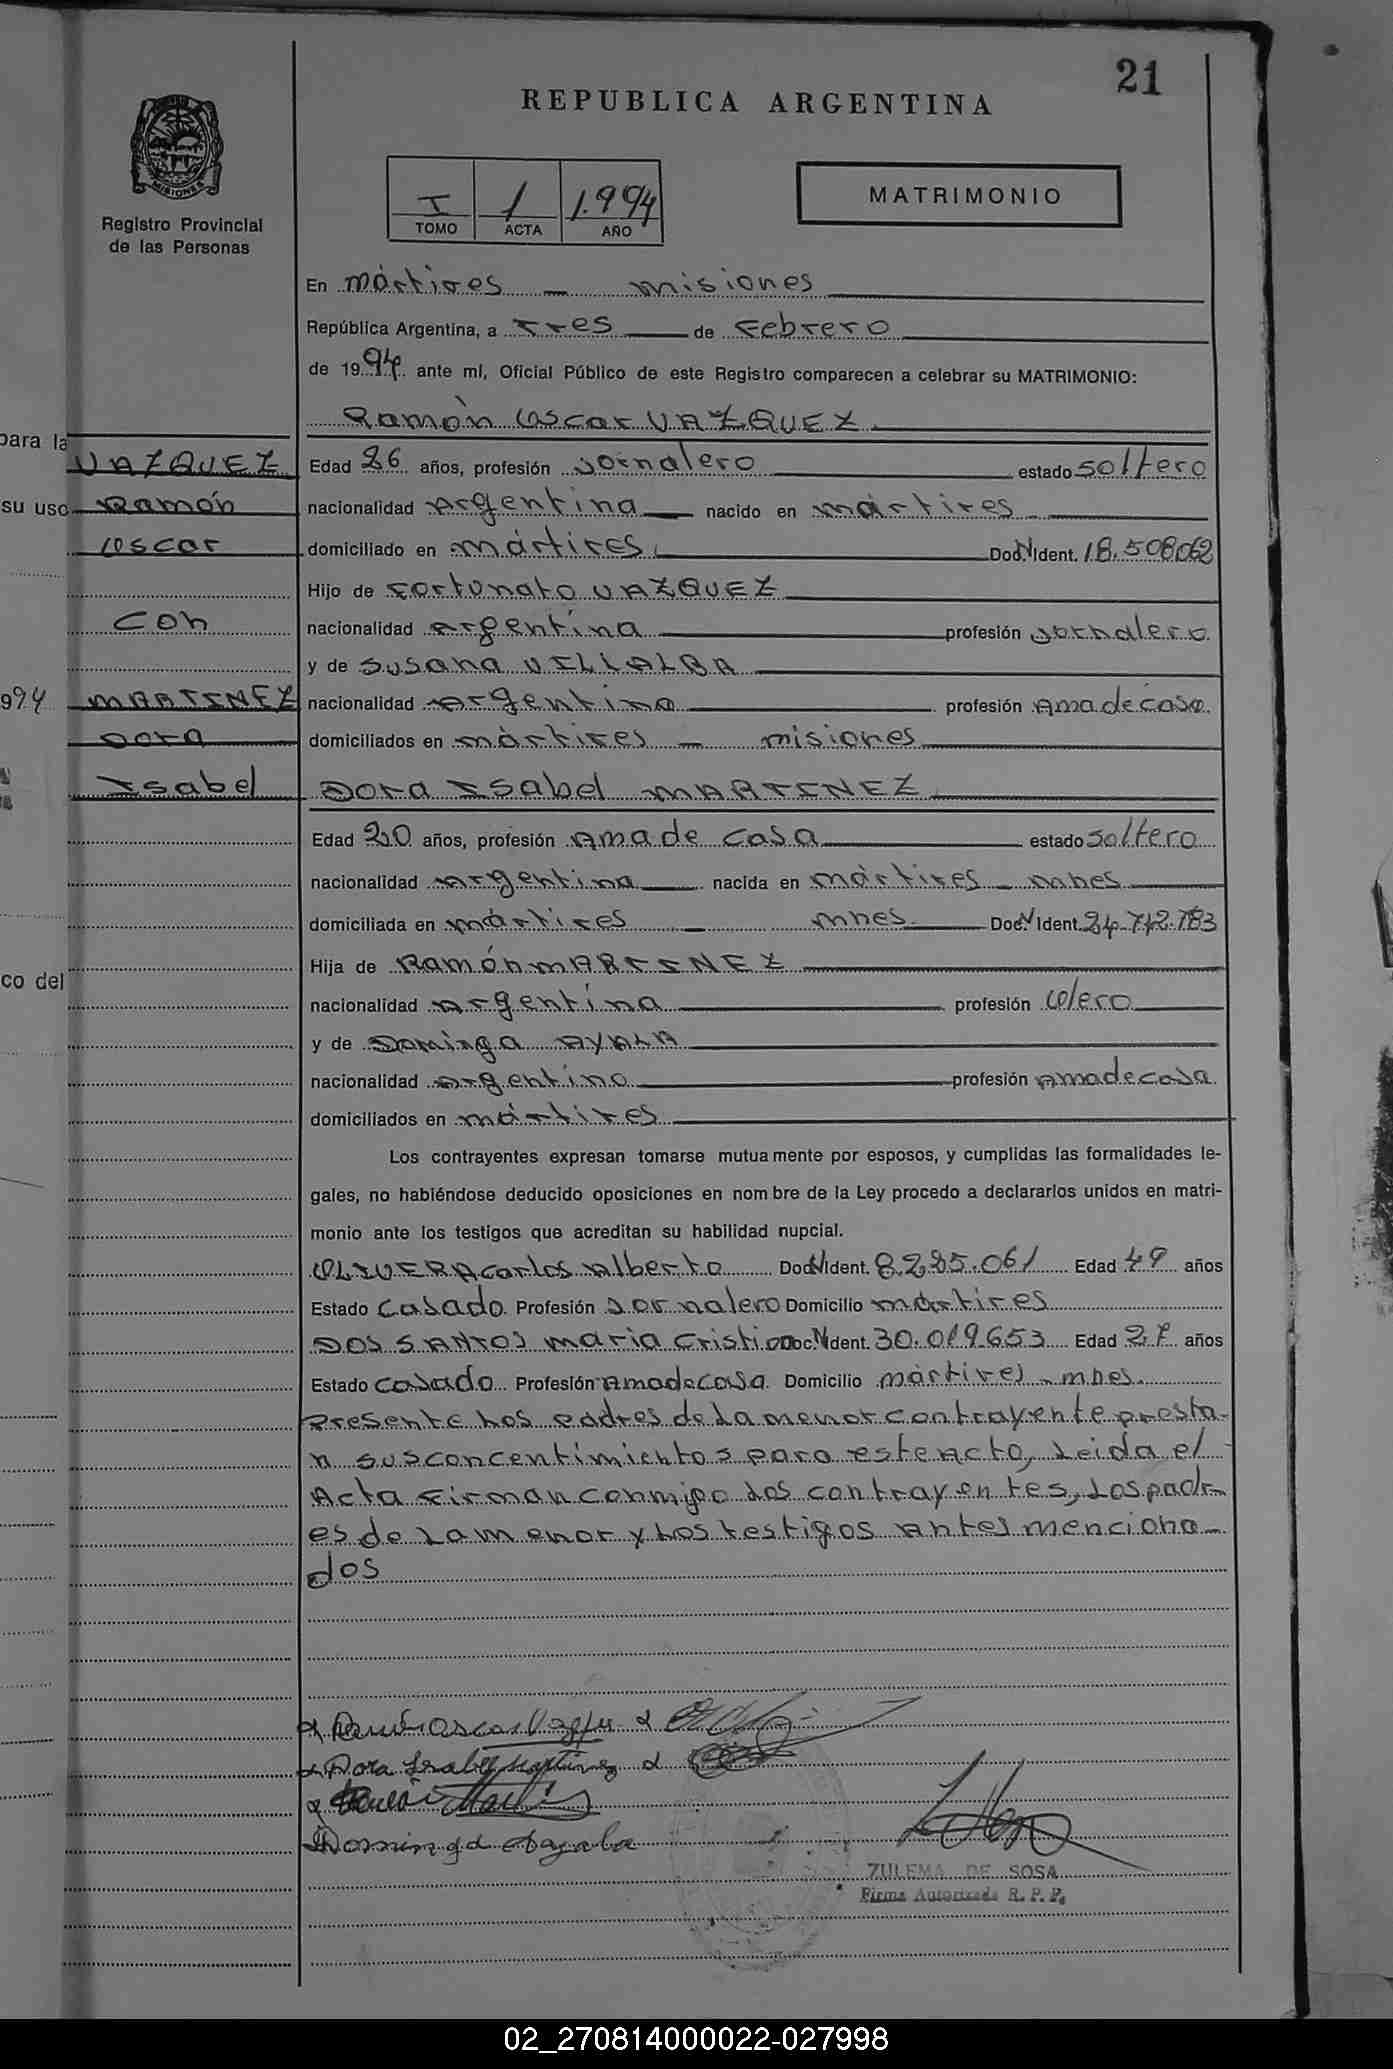 21
REPUBLICA ARGENTINA
MISIONES
Registro Provincial
de las Personas
I 1 1.994
TOMO ACTA AÑO
MATRIMONIO
En mártires - misiones
República Argentina, a Tres de Febrero
de 1994 ante mí, Oficial Público de este Registro comparecen a celebrar su MATRIMONIO:
Ramón Oscar VAZQUEZ
para la
VAZQUEZ
Edad 26 años, profesión Jornalero estado soltero
su uso
Ramón
nacionalidad Argentina nacido en mártires
Oscar
domiciliado en mártires Doc. N Ident. 18.508.062
Hijo de Fortunato VAZQUEZ
con
nacionalidad Argentina profesión Jornalero
y de Susana VILLALBA
994
MARTINEZ
nacionalidad Argentina profesión Ama de casa
Dora
domiciliados en mártires - misiones
Isabel
Dora Isabel MARTINEZ
Edad 20 años, profesión Ama de casa estado soltero
nacionalidad Argentina nacida en mártires - mnes
domiciliada en mártires - mnes. Doc. N Ident. 24.712.783
co del
Hija de Ramón MARTINEZ
nacionalidad Argentina profesión Olero
y de Dominga AYALA
nacionalidad Argentina profesión Ama de casa
domiciliados en mártires
Los contrayentes expresan tomarse mutuamente por esposos, y cumplidas las formalidades le-
gales, no habiéndose deducido oposiciones en nombre de la Ley procedo a declararlos unidos en matri-
monio ante los testigos que acreditan su habilidad nupcial.
OLIVERA Carlos Alberto Doc. N Ident. 8.225.061 Edad 49 años
Estado Casado Profesión Jornalero Domicilio mártires
DOS SANTOS Maria Cristina Doc. N Ident. 30.019.653 Edad 27 años
Estado Casado Profesión Ama de casa Domicilio mártires - mnes.
Presente Los Padres de La menor contrayente presta-
n sus concentimientos para este Acto, Leida el
Acta Firman conmigo Los contrayentes, Los padr-
es de La menor y Los testigos Antes menciona-
dos
Ramón Oscar Vazquez
Dora Isabel Martinez
Ramón Martinez
Dominga Ayala
ZULEMA DE SOSA
Firma Autorizada R. P. P.
02_270814000022-027998